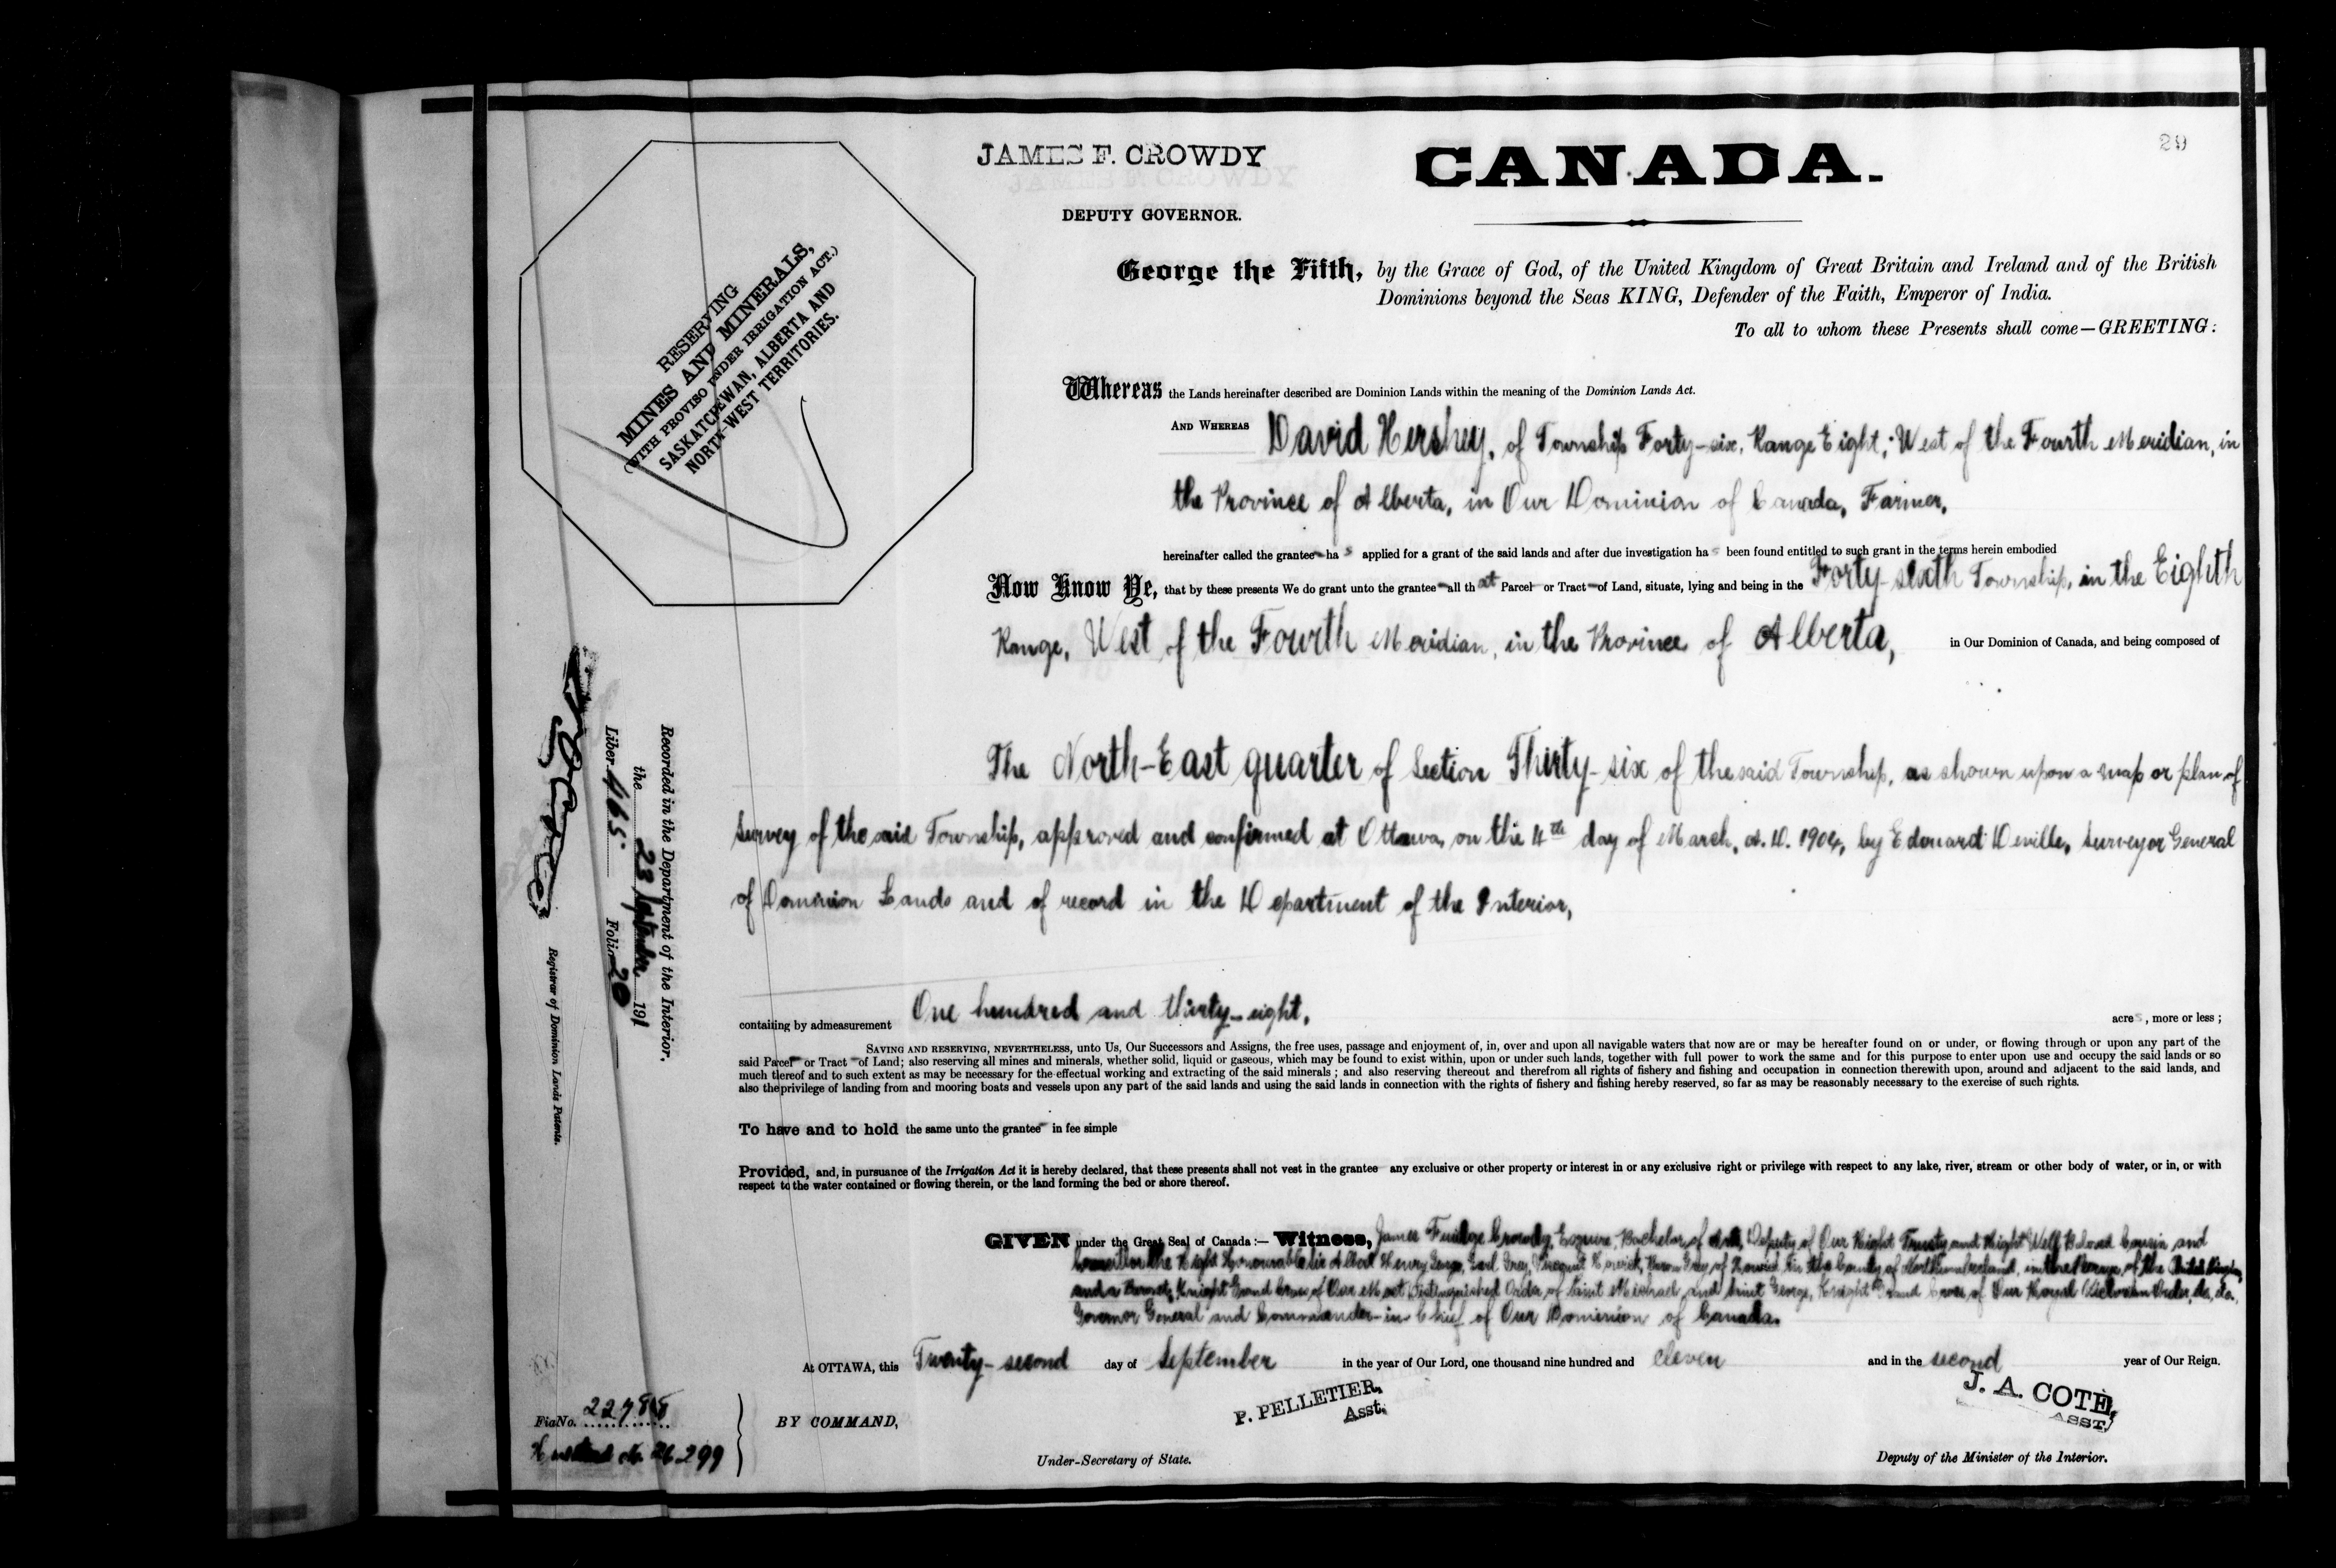 29
JAMES F. CROWDY
DEPUTY GOVERNOR.
CANADA.
RESERVING
MINES AND MINERALS,
(WITH PROVISO UNDER IRRIGATION ACT.)
SASKATCHEWAN, ALBERTA AND
NORTH-WEST TERRITORIES.
George the Fifth, by the Grace of God, of the United Kingdom of Great Britain and Ireland and of the British
Dominions beyond the Seas KING, Defender of the Faith, Emperor of India.
To all to whom these Presents shall come—GREETING:
Whereas the Lands hereinafter described are Dominion Lands within the meaning of the Dominion Lands Act.
AND WHEREAS David Hershey, of Township Forty-six, Range Eight, West of the Fourth Meridian, in
the Province of Alberta, in Our Dominion of Canada, Farmer,
hereinafter called the grantee has applied for a grant of the said lands and after due investigation has been found entitled to such grant in the terms herein embodied
Now Know Ye, that by these presents We do grant unto the grantee all that Parcel or Tract of Land, situate, lying and being in the Forty-sixth Township, in the Eighth
Range, West of the Fourth Meridian, in the Province of Alberta, in Our Dominion of Canada, and being composed of
The North-East quarter of Section Thirty-six of the said Township, as shown upon a map or plan of
survey of the said Township, approved and confirmed at Ottawa, on the 4th day of March, A.D. 1904, by Edouard Deville, Surveyor General
of Dominion Lands and of record in the Department of the Interior,
containing by admeasurement One hundred and thirty-eight, acres, more or less;
SAVING AND RESERVING, NEVERTHELESS, unto Us, Our Successors and Assigns, the free uses, passage and enjoyment of, in, over and upon all navigable waters that now are or may be hereafter found on or under, or flowing through or upon any part of the
said Parcel or Tract of Land; also reserving all mines and minerals, whether solid, liquid or gaseous, which may be found to exist within, upon or under such lands, together with full power to work the same and for this purpose to enter upon use and occupy the said lands or so
much thereof and to such extent as may be necessary for the effectual working and extracting of the said minerals; and also reserving thereout and therefrom all rights of fishery and fishing and occupation in connection therewith upon, around and adjacent to the said lands, and
also the privilege of landing from and mooring boats and vessels upon any part of the said lands and using the said lands in connection with the rights of fishery and fishing hereby reserved, so far as may be reasonably necessary to the exercise of such rights.
To have and to hold the same unto the grantee in fee simple
Provided, and, in pursuance of the Irrigation Act it is hereby declared, that these presents shall not vest in the grantee any exclusive or other property or interest in or any exclusive right or privilege with respect to any lake, river, stream or other body of water, or in, or with
respect to the water contained or flowing therein, or the land forming the bed or shore thereof.
GIVEN under the Great Seal of Canada:— Witness, James Fuidge Crowdy, Esquire, Bachelor of Arts, Deputy of Our Right Trusty and Right Well Beloved Cousin and
Councillor the Right Honourable Sir Albert Henry George, Earl Grey, Viscount Howick, Baron Grey of Howick, in the County of Northumberland, in the Peerage of the United Kingdom
and a Baronet; Knight Grand Cross of Our Most Distinguished Order of Saint Michael and Saint George, Knight Grand Cross of Our Royal Victorian Order, &c., &c.,
Governor General and Commander-in-Chief of Our Dominion of Canada.
At OTTAWA, this Twenty-second day of September in the year of Our Lord, one thousand nine hundred and eleven and in the second year of Our Reign.
BY COMMAND,
P. PELLETIER,
Asst.
Under-Secretary of State.
J. A. COTÉ,
ASST.
Deputy of the Minister of the Interior.
Recorded in the Department of the Interior,
the 23 September 1911
Liber 465 Folio 20
Registrar of Dominion Lands Patents.
Fiat No.